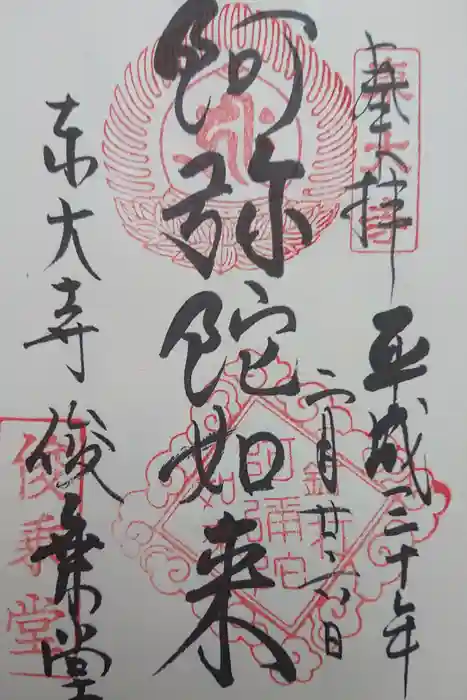 奉拝
東大寺
平成三十年
二月廿六日
阿弥陀如来
阿弥陀如来
東大寺
俊乗堂
俊乗堂